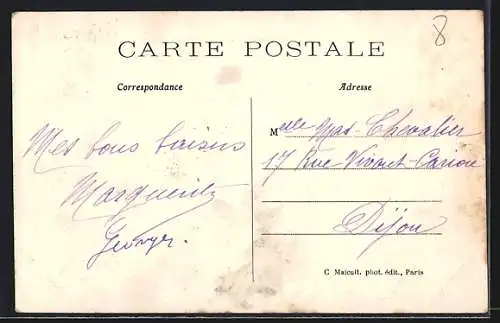 8
CARTE POSTALE
Correspondance
Adresse
Mes bons baisers
Marguerite
Georges.
Melle Chevalier
17 Rue Vivant-Carion
Dijon
C Malcuit. phot. édit., Paris